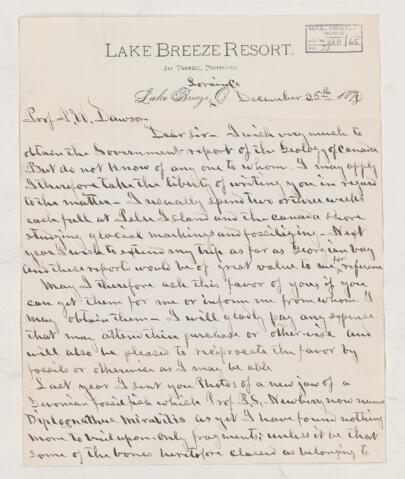 LAKE BREEZE RESORT.
JAY TERRELL, PROPRIETOR
Lorain Co
Lake Breeze, O. December 25th 187
Prof. J.W. Dawson
Dear Sir - I wish very much to
obtain the Government report of the Geology of Canada
But do not know of any one to whom I may apply
I therefore take the liberty of writing you in regard
to the matter - I usually spend two or three weeks
each fall at Pelee Island and the canada shore
studying glacial markings and fossilizing - Next
year I wish to extend my trip as far as Georgian bay
and these reports would be of great value to me for reference
May I therefore ask this favor of yours if you
can get them for me or inform me from whom I
may obtain them - I will gladly pay any expense
that may attend their purchase or otherwise and
will also be pleased to reciprocate the favor by
fossils or otherwise as I may be able
Last year I sent you Photos of a new jaw of a
Devonian fossil fish which Prof J.S. Newberry now name
Diplognathus. Mirabilis as yet I have found nothing
more to build upon. Only fragments; unless it be that
some of the bones heretofore classed as belonging to